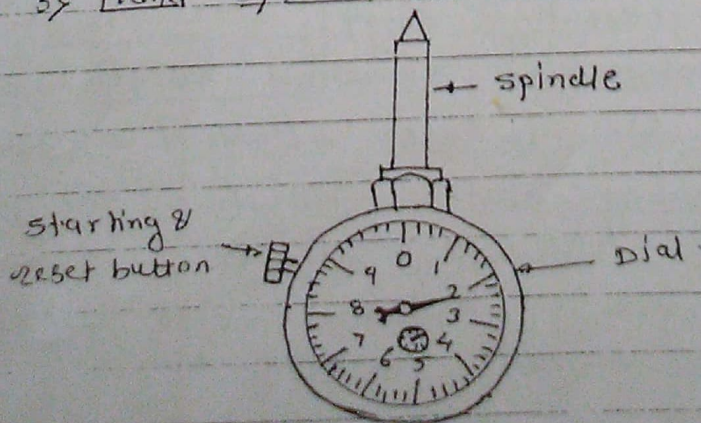 3>
spindle
starting &
reset button
Dial
0
1
2
3
4
5
6
7
8
9